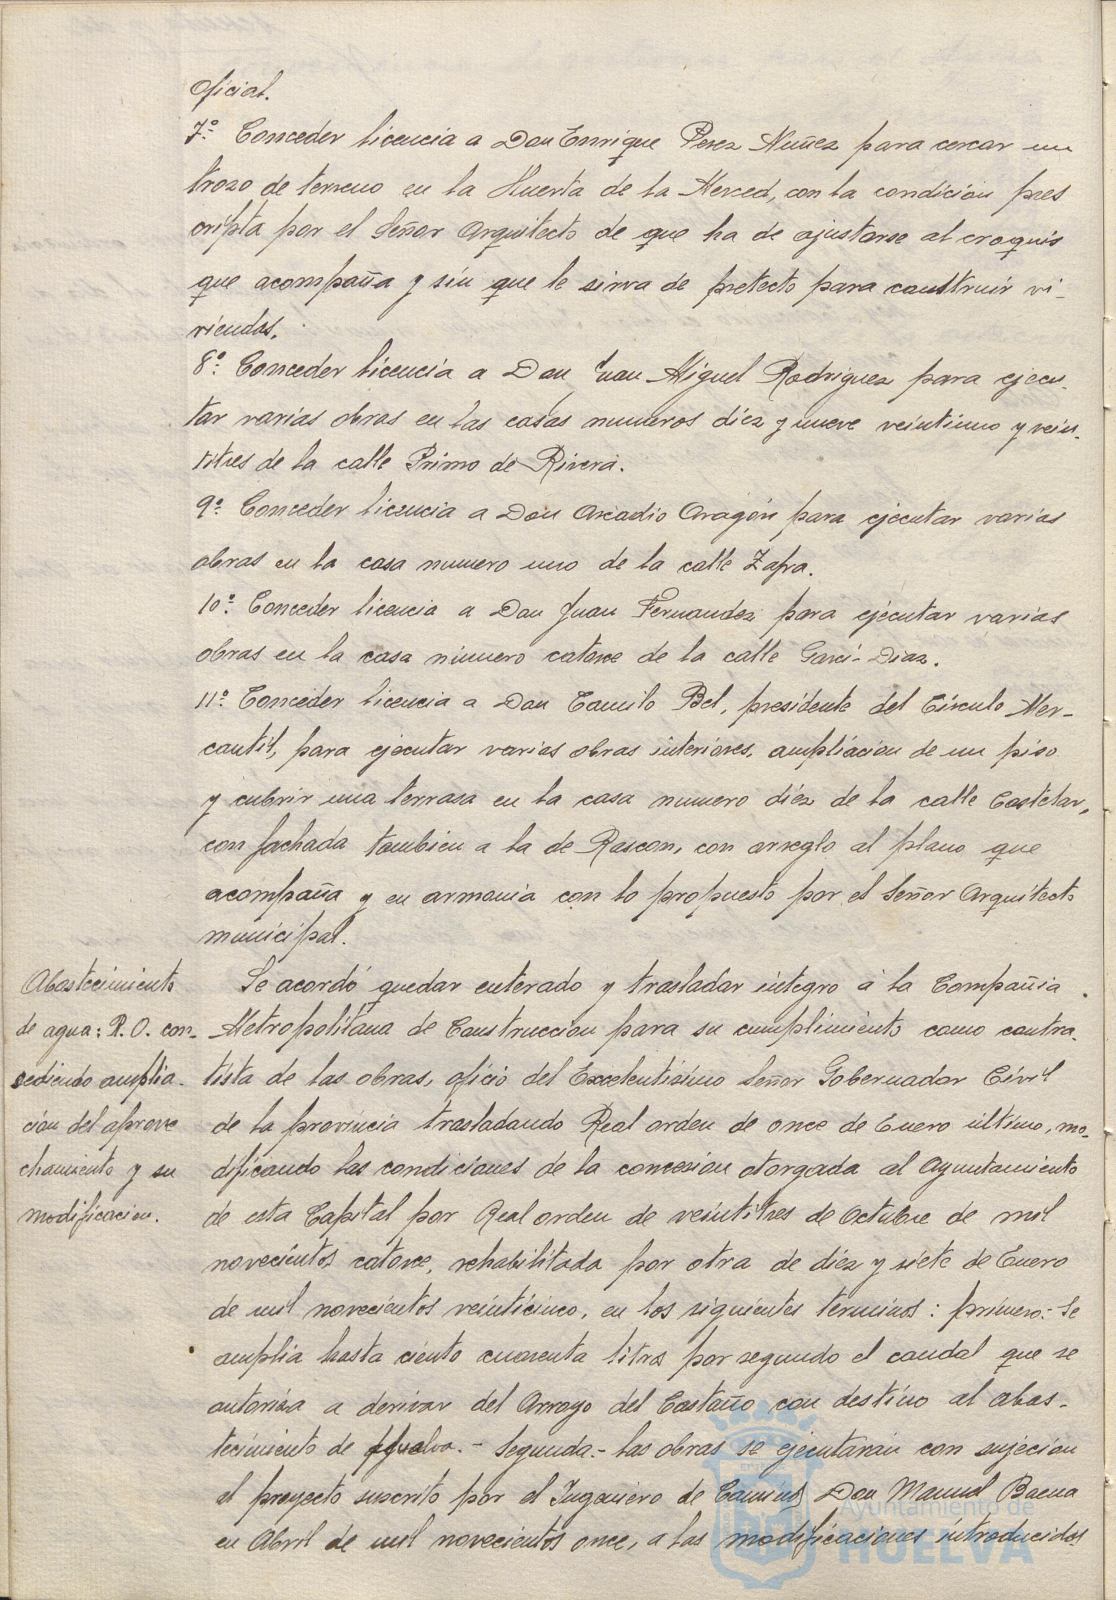 oficial.
7º. Conceder licencia a Don Enrique Perez Nuñez para cercar un
trozo de terreno en la Huerta de la Merced, con la condicion pres
cripta por el Señor Arquitecto de que ha de ajustarse al croquis
que acompaña y sin que le sirva de pretecto para construir vi-
viendas.
8º. Conceder licencia a Don Juan Miguel Rodriguez para ejecu-
tar varias obras en las casas numeros diez y nueve veintiuno y vein-
titres de la calle Primo de Rivera.
9º. Conceder licencia a Don Arcadio Aragón para ejecutar varias
obras en la casa numero uno de la calle Zafra.
10º. Conceder licencia a Don Juan Fernandez para ejecutar varias
obras en la casa número catorce de la calle Garci-Diaz.
11º. Conceder licencia a Don Camilo Bel, presidente del Círculo Mer-
cantil, para ejecutar varias obras interiores, ampliacion de un piso
y cubrir una terrasa en la casa numero diez de la calle Castelar,
con fachada tambien a la de Rascon, con arreglo al plano que
acompaña y en armonia con lo propuesto por el Señor Arquitecto
municipal.
Abastecimiento
de agua: R.O. con-
cediendo amplia-
ción del aprove
chamiento y su
modificacion.
Se acordó quedar enterado y trasladar integro á la Compañia
Metropolitana de Construccion para su cumplimiento como contra-
tista de las obras, oficio del Excelentisimo Señor Gobernador Civil
de la provincia trasladando Real orden de once de Enero ultimo, mo-
dificando las condiciones de la concesion otorgada al Ayuntamiento
de esta Capital por Real orden de veintitres de Octubre de mil
novecientos catorce, rehabilitada por otra de diez y siete de Enero
de mil novecientos veinticinco, en los siguientes terminos: primero:- Se
amplia hasta ciento cuarenta litros por segundo el caudal que se
autoriza a derivar del Arroyo del Castaño con destino al abas-
tecimiento de Huelva.- Segunda.- las obras se ejecutarán con sujecion
al proyecto suscrito por el Ingeniero de Caminos Don Manuel Baena
en Abril de mil novecientos once, a las modificaciones introducidas
Ayuntamiento de
HUELVA